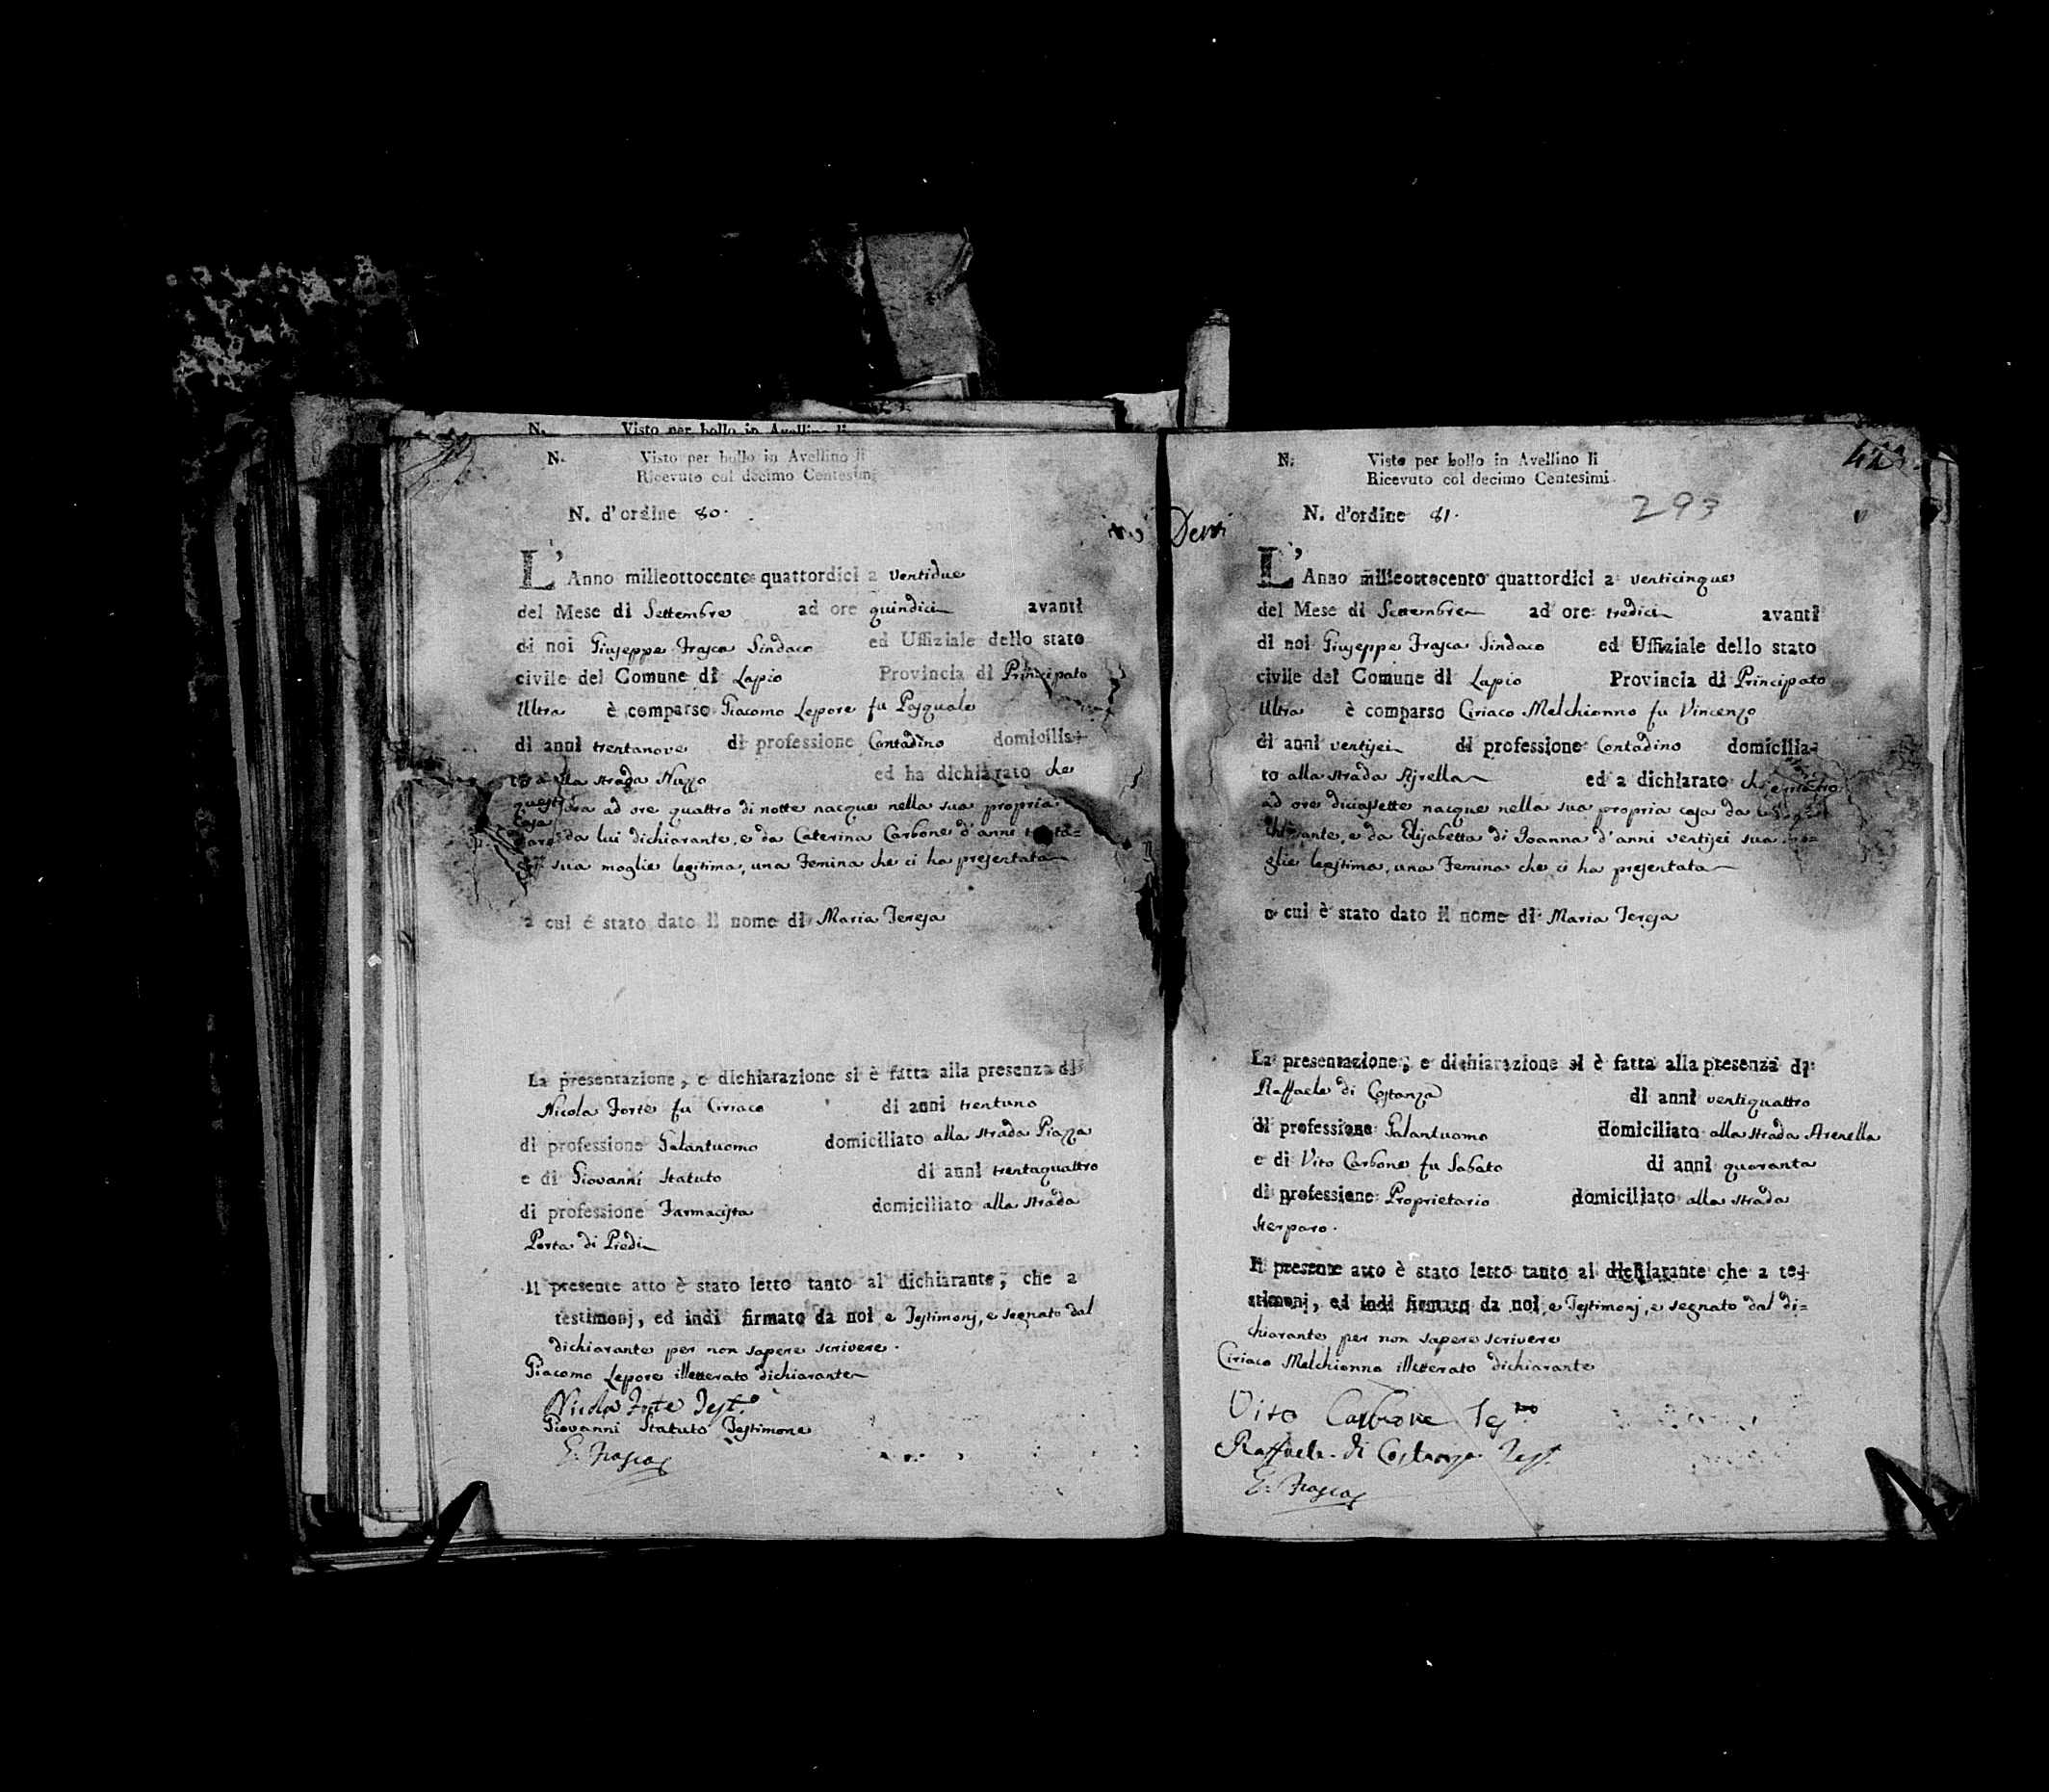 N. Visto per bollo in Avellino li
N. Visto per bollo in Avellino li
Ricevuto col decimo Centesimi
N. d'ordine 80.
L'Anno milleottocento quattordici a ventidue
del Mese di Settembre ad ore quindici avanti
di noi Giuseppe Frasca Sindaco ed Uffiziale dello stato
civile del Comune di Lapio Provincia di Principato
Ultra è comparso Giacomo Lepore fu Pasquale
di anni trentanove di professione Contadino domicilia-
to alla strada Nuzzo ed ha dichiarato che
ad ore quattro di notte nacque nella sua propria
casa da lui dichiarante, e da Caterina Carbone d'anni
sua moglie legitima, una Femina che ci ha presentata
a cui è stato dato il nome di Maria Teresa
La presentazione, e dichiarazione si è fatta alla presenza di
Nicola Forte fu Ciriaco di anni trentuno
di professione Galantuomo domiciliato alla strada Piazza
e di Giovanni Statuto di anni trentaquattro
di professione Farmacista domiciliato alla strada
Porta di Piedi
Il presente atto è stato letto tanto al dichiarante, che a
testimonj, ed indi firmato da noi e Testimonj, e segnato dal
dichiarante per non sapere scrivere.
Giacomo Lepore illetterato dichiarante
Nicola Forte Test.o
Giovanni Statuto Testimone
G. Frasca
N. Visto per bollo in Avellino li
Ricevuto col decimo Centesimi
293
N. d'ordine 81.
L'Anno milleottocento quattordici a venticinque
del Mese di Settembre ad ore tredici avanti
di noi Giuseppe Frasca Sindaco ed Uffiziale dello stato
civile del Comune di Lapio Provincia di Principato
Ultra è comparso Ciriaco Melchionno fu Vincenzo
di anni ventisei di professione Contadino domicilia-
to alla strada Ajrella ed a dichiarato che
ad ore diciassette nacque nella sua propria casa da
chiarante, e da Elisabetta di Joanna d'anni ventisei sua mo=
glie legitima, una Femina che ci ha presentata
a cui è stato dato il nome di Maria Teresa
La presentazione, e dichiarazione si è fatta alla presenza di
Raffaele di Costanza di anni ventiquattro
di professione Galantuomo domiciliato alla strada Arenella
e di Vito Carbone fu Sabato di anni quaranta
di professione Proprietario domiciliato alla strada
Sterparo.
Il presente atto è stato letto tanto al dichiarante che a te-
stimonj, ed indi firmato da noi, e Testimonj, e segnato dal di=
chiarante per non sapere scrivere
Ciriaco Melchionna illetterato dichiarante
Vito Carbone Tes.mo
Raffaele di Costanza Test.
G. Frasca